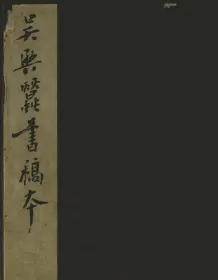 吳興蠶書稿本